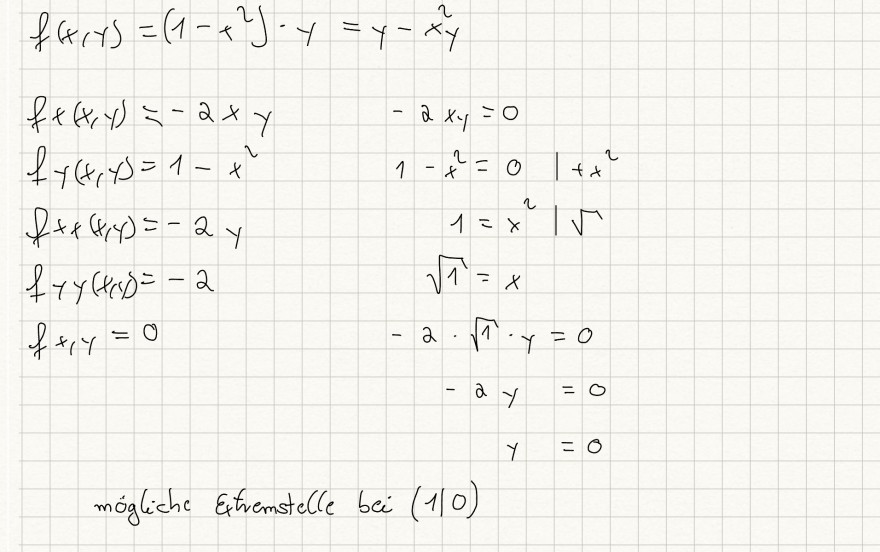 f(x,y) = (1 - x²) · y = y - x²y
fx(x,y) = - 2xy    - 2xy = 0
fy(x,y) = 1 - x²    1 - x² = 0 | + x²
fxx(x,y) = - 2y    1 = x² | √
fyy(x,y) = - 2    √1 = x
fx,y = 0    - 2 · √1 · y = 0
- 2y = 0
y = 0
mögliche Extremstelle bei (1|0)